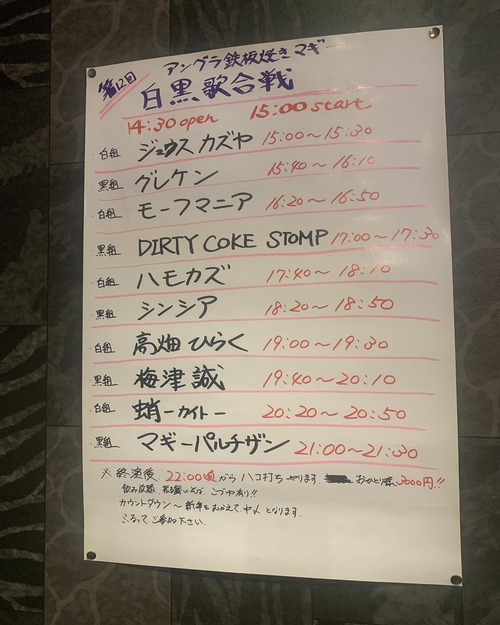 第12回 アングラ鉄板焼きマギー
白黒歌合戦
14:30 open 15:00 start
白組 ジュウス カズヤ 15:00〜15:30
黒組 グレケン 15:40〜16:10
白組 モーフマニア 16:20〜16:50
黒組 DIRTY COKE STOMP 17:00〜17:30
白組 ハモカズ 17:40〜18:10
黒組 シンシア 18:20〜18:50
白組 高畑 ひらく 19:00〜19:30
黒組 梅津 誠 19:40〜20:10
白組 蛸ーカイトー 20:20〜20:50
黒組 マギーパルチザン 21:00〜21:30
※ 終演後 22:00頃から ハコ打ち やります お一人様 3000円!!
飲み放題 年越しそば こづゆ有り!!
カウントダウン〜新年をむかえて中〆となります。
ふるってご参加下さい。